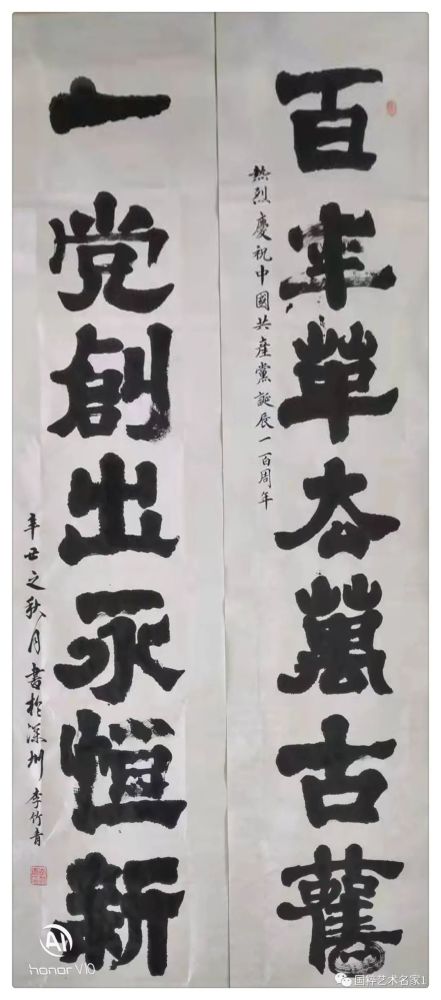 百年革去萬古舊
熱烈慶祝中國共產黨誕辰一百周年
一党創出永恒新
辛丑之秋月書於深圳 李竹青
AI
honor V10
国粹艺术名家1